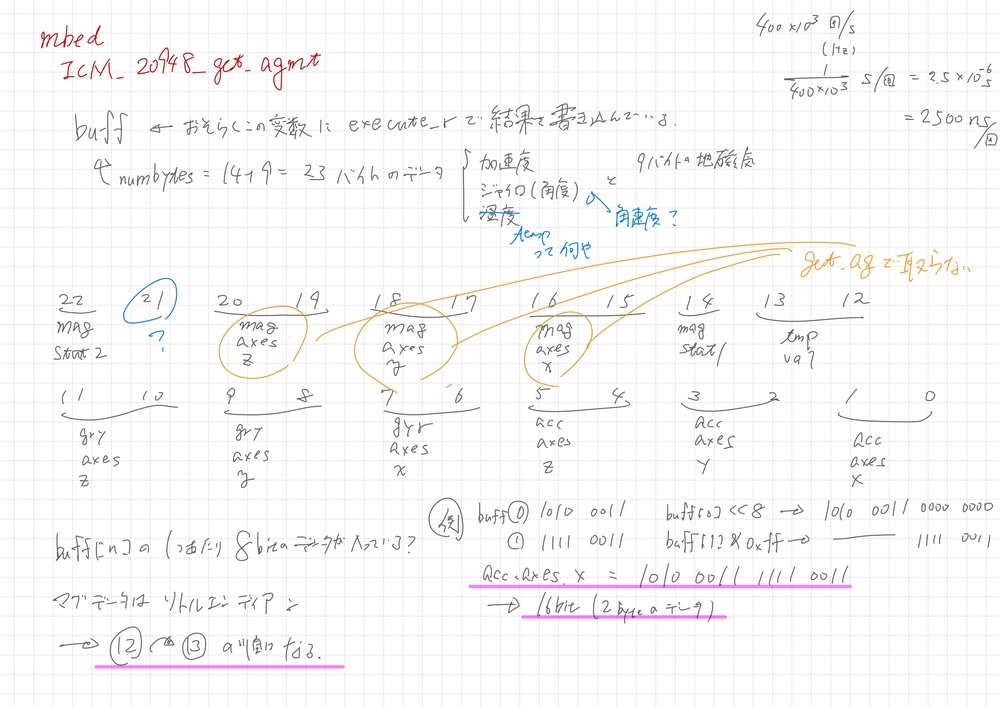 mbed
ICM_20948_get_agmt
400×10³ 回/s
(Hz)
1/400×10³ s/回 = 2.5×10⁻⁶ s
= 2500 ns/回
buff ← おそらくこの変数に execute_r で結果を書き込んでいる.
numbytes = 14+9 = 23 バイトのデータ
加速度
ジャイロ(角度)
温度
と
9バイトの地磁気
角速度?
temp
って何や
get_agで取らない
22 21 20 19 18 17 16 15 14 13 12
mag
stat2
?
mag
axes
z
mag
axes
y
mag
axes
x
mag
stat1
tmp
val
11 10 9 8 7 6 5 4 3 2 1 0
gry
axes
z
gry
axes
y
gyr
axes
x
acc
axes
z
acc
axes
y
acc
axes
x
buff[n]の1つあたり8bitのデータが入っている?
マグデータはリトルエンディアン
→ ⑫ ⑬ の順になる.
例
buff⓪ 1010 0011
① 1111 0011
buff[0]<<8 → 1010 0011 0000 0000
buff[1]&0xff → 1111 0011
acc.axes.x = 1010 0011 1111 0011
→ 16bit (2byteのデータ)